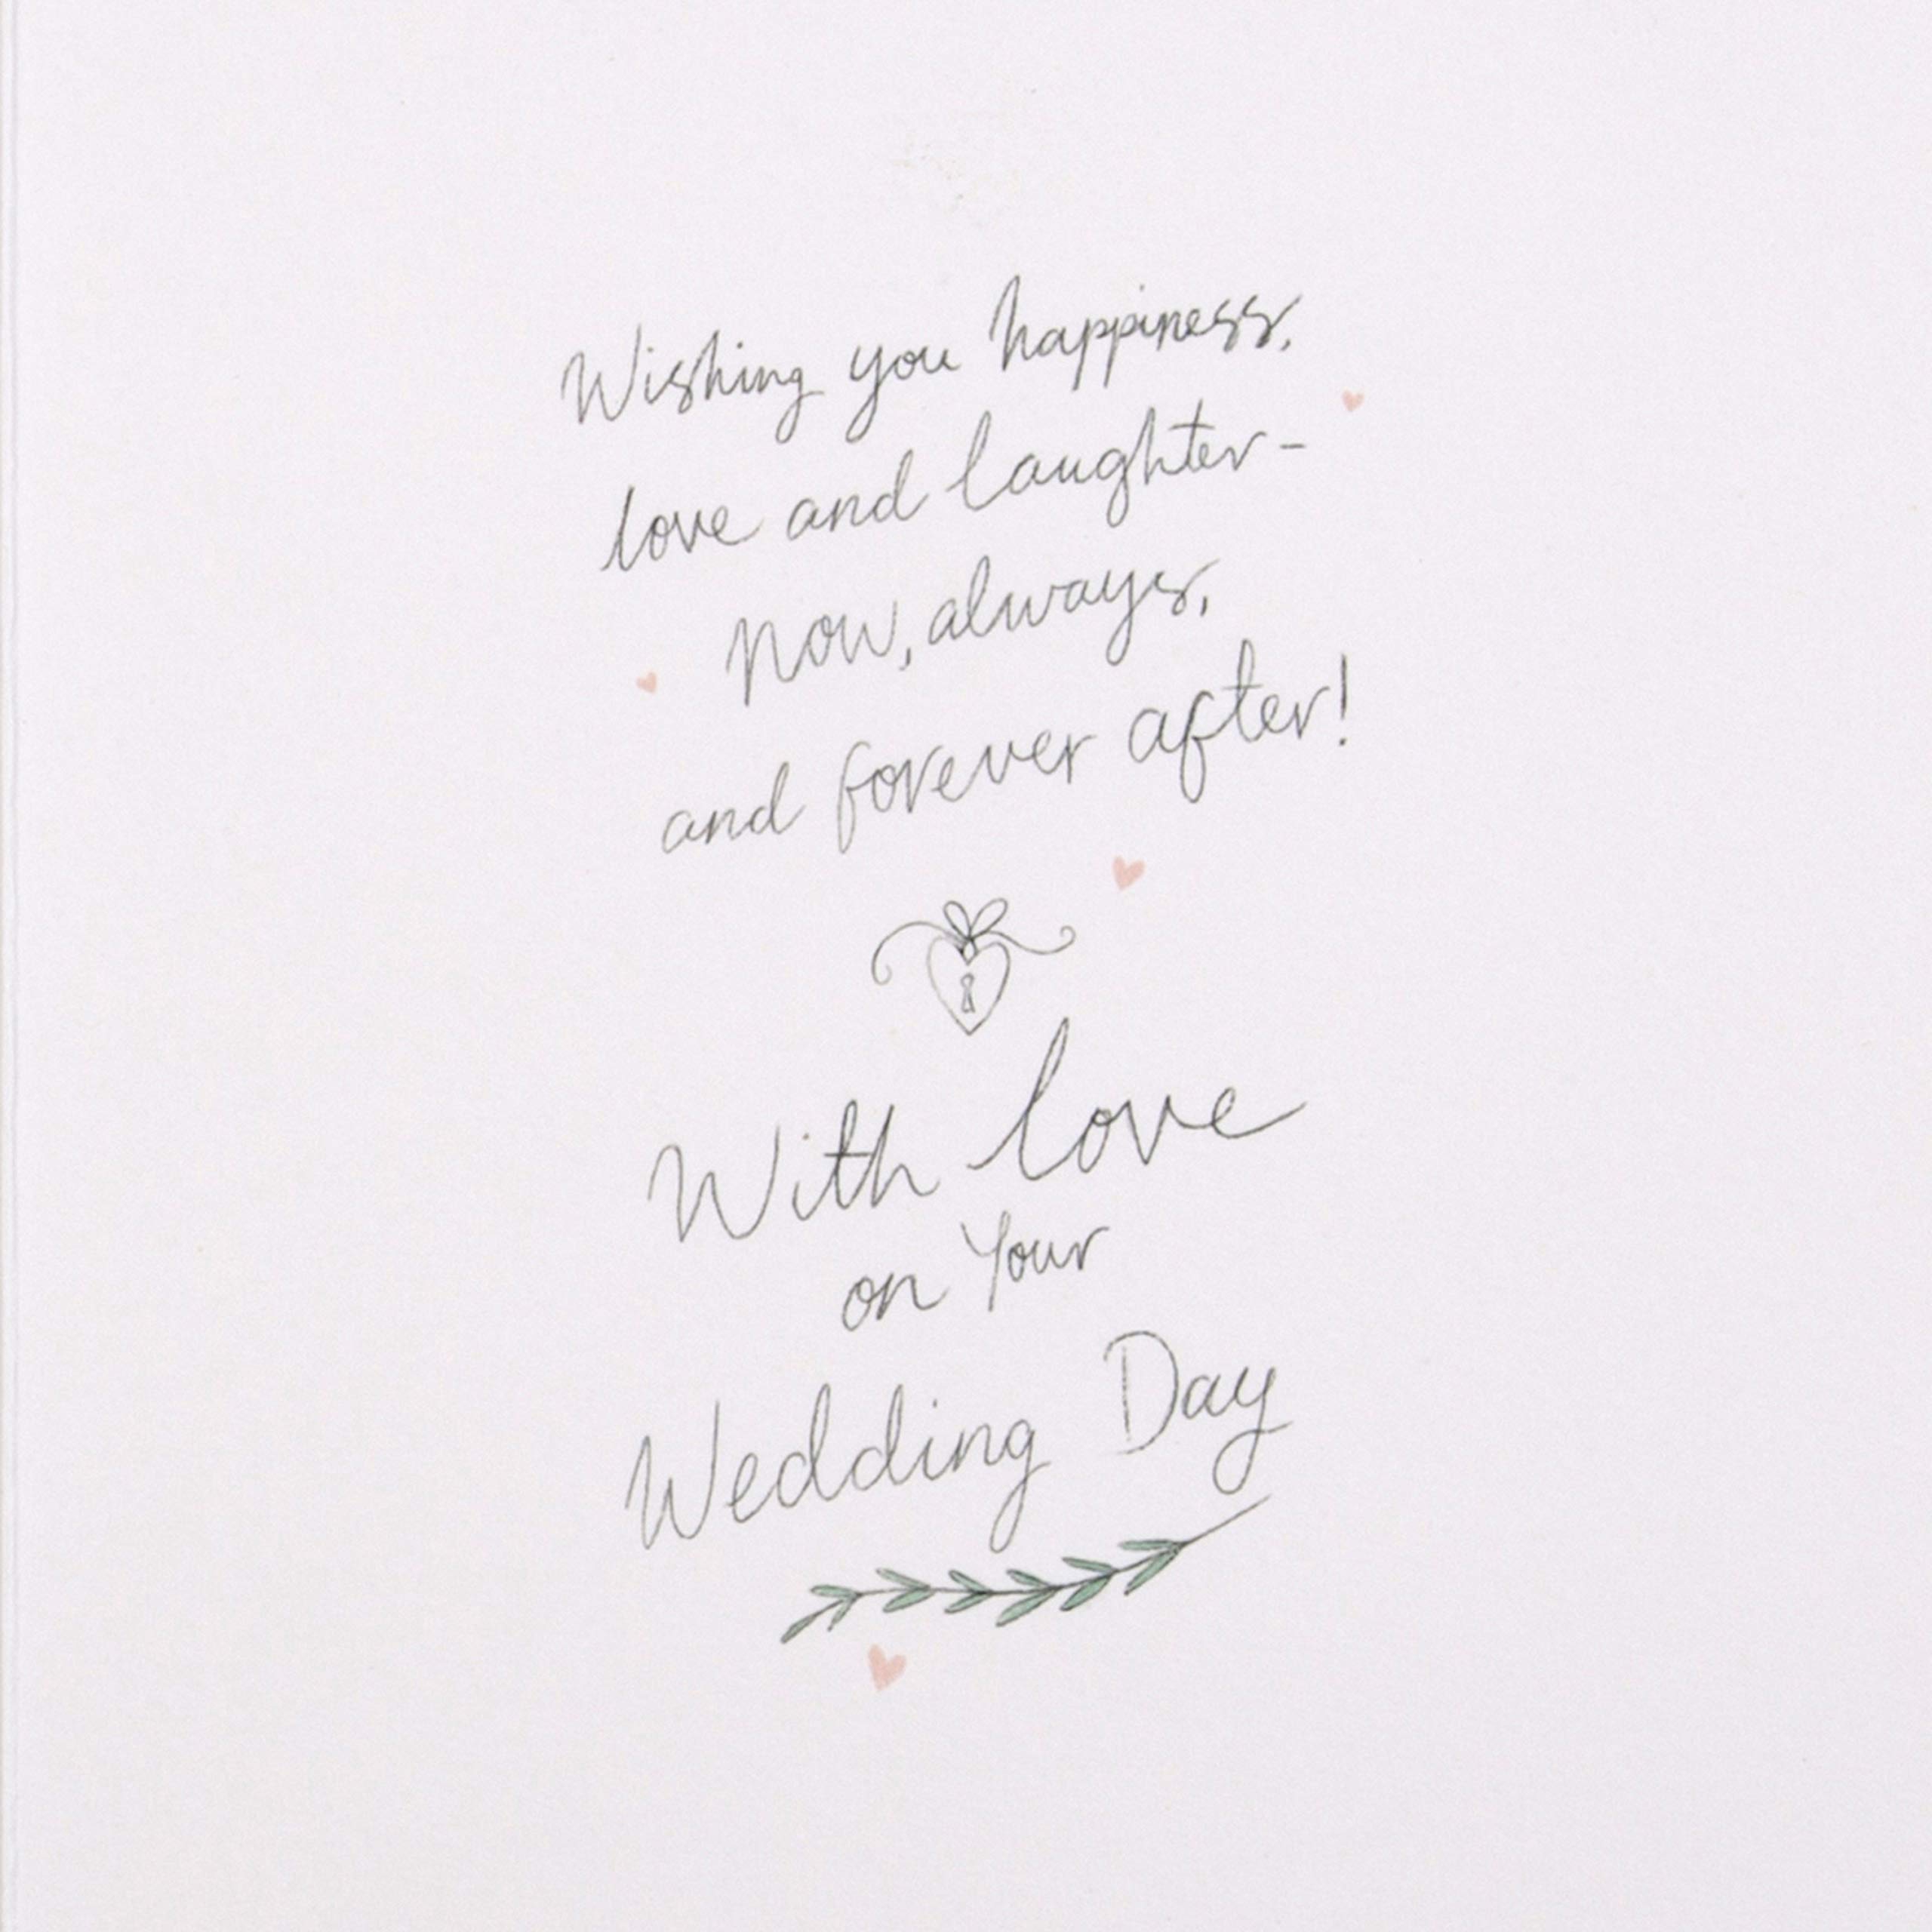 Wishing you happiness,
love and laughter-
now, always,
and forever after!
With love
on Your
Wedding Day